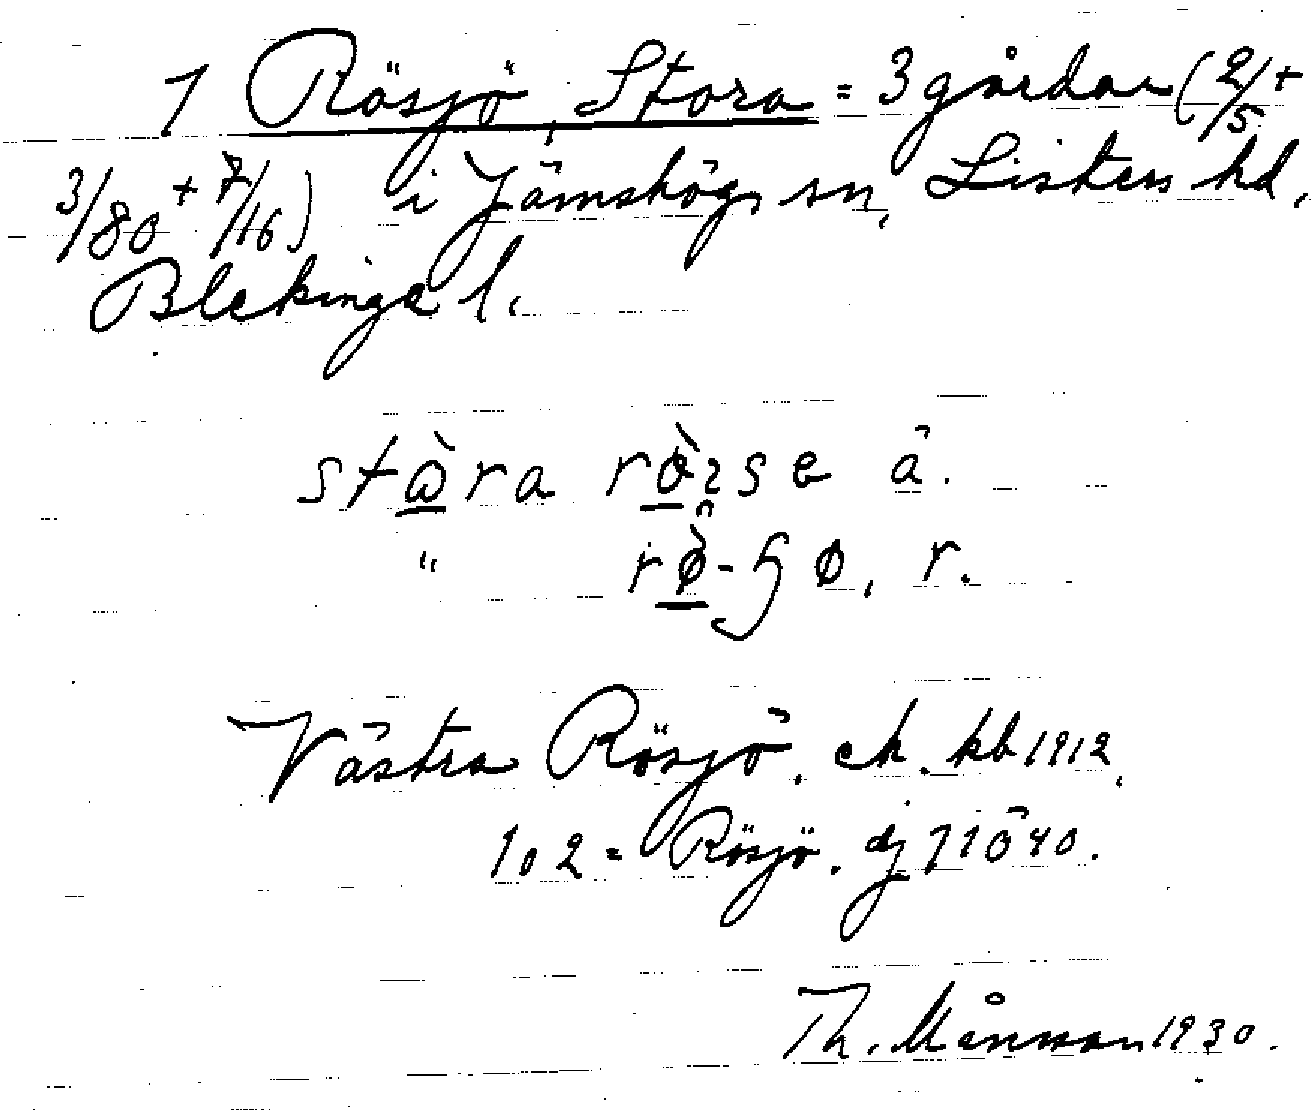 1 Rösjö, Stora = 3 gårdar (2/5 +
3/80 + 7/16) i Jämshögs sn, Listers hd,
Blekinge l.
stὼra rö̀ɿse â.
" rø̂-ɧø, r.
Västra Rösjö. ek. kb 1912.
1 o 2 = Rösjö. dj 71040.
Th. Månsson 1930.